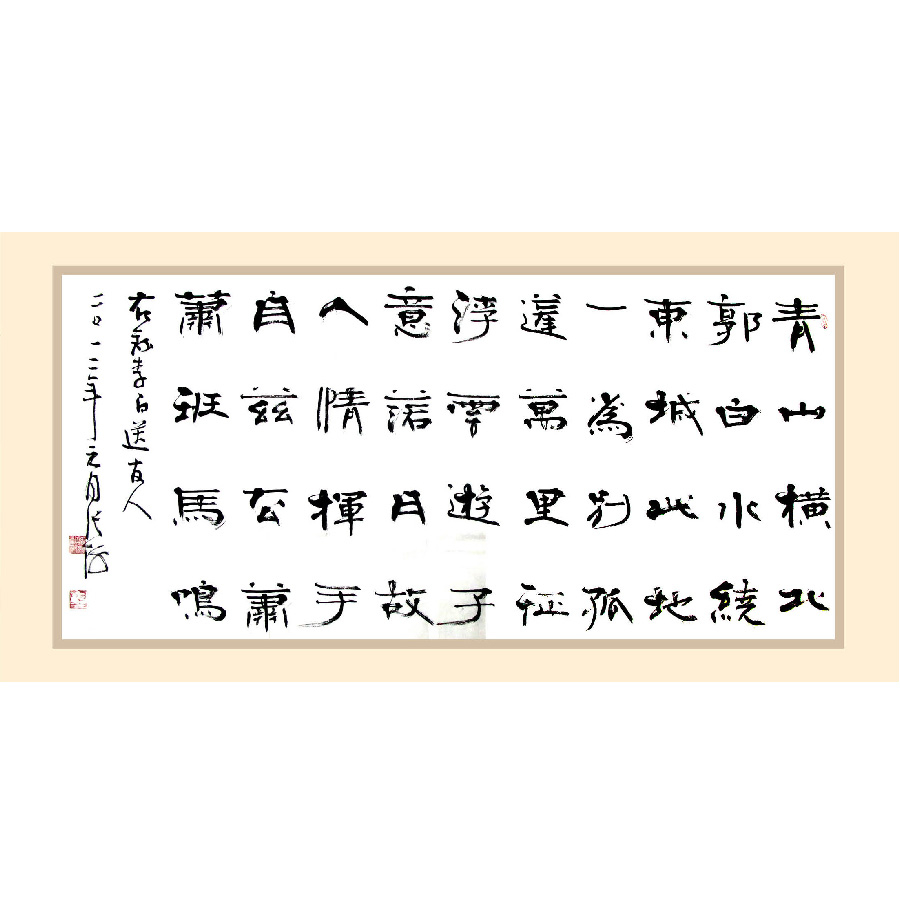 青山橫北
郭白水繞
東城此地
一為別孤
蓬萬里征
浮雲遊子
意落日故
人情揮手
自茲去蕭
蕭班馬鳴
右錄李白送友人
二〇一二年元月